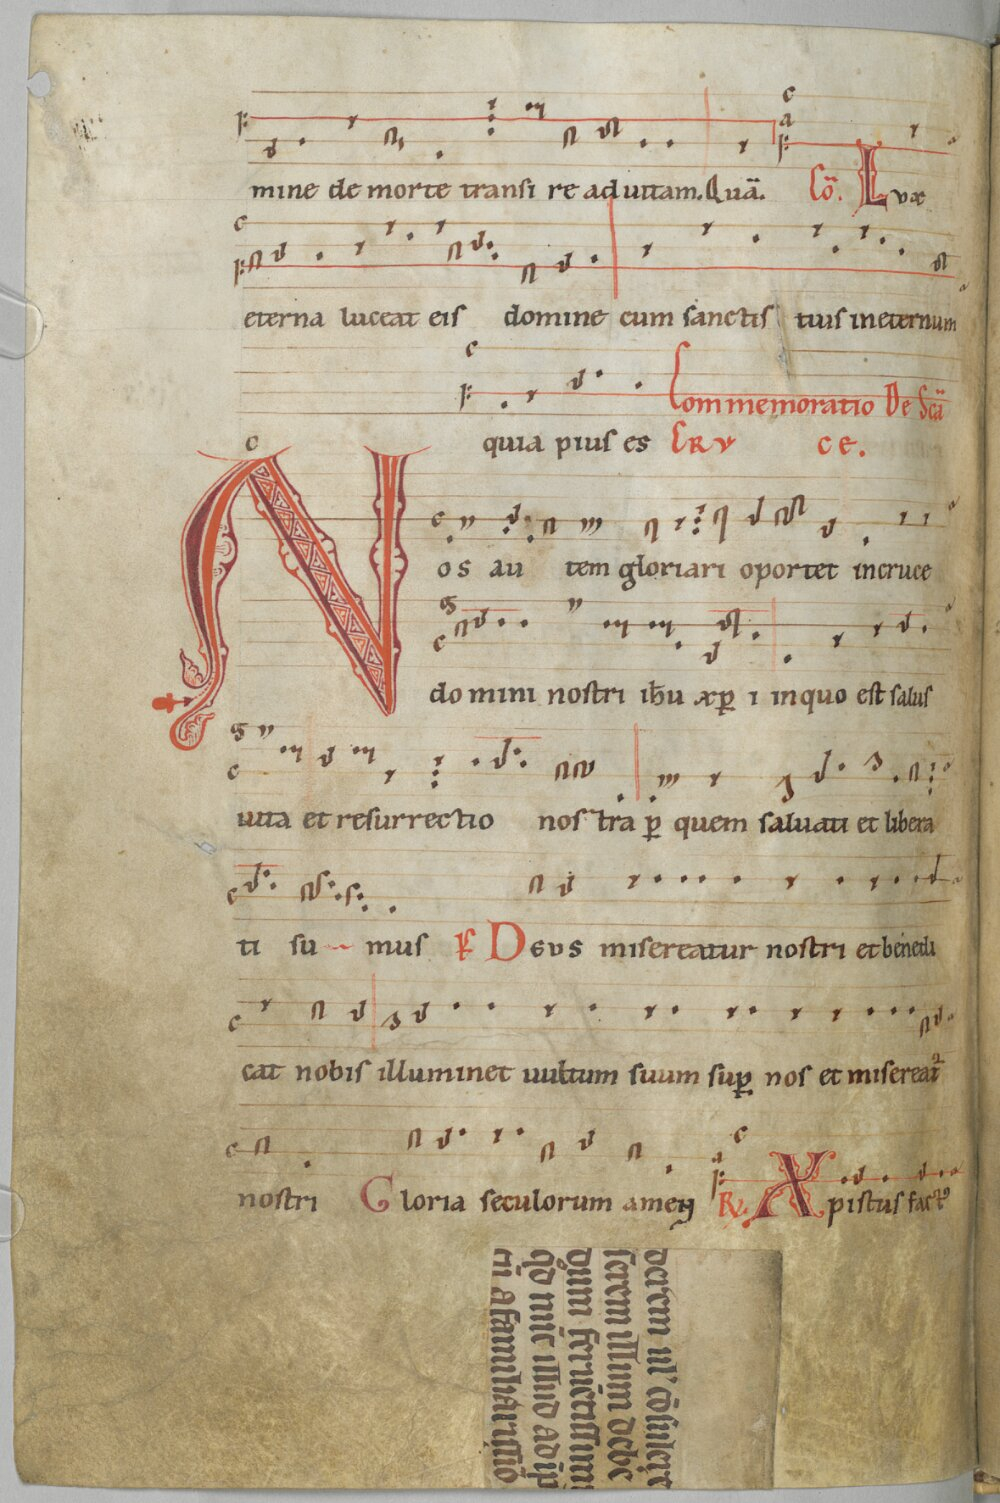 mine de morte transi re ad uitam. Quā. Cō. Lvx
eterna luceat eis domine cum sanctis tuis in eternum
quia pius es Commemoratio De Scā
CRV CE.
Nos au tem gloriari oportet in cruce
do mini nostri ihu xp i in quo est salus
uita et resurrectio nos tra p quem saluati et libera
ti su mus Ps Devs misereatur nostri et benedi
cat nobis illuminet uultum suum sup nos et misereat
nostri Gloria seculorum amen RV. Xpistus fact